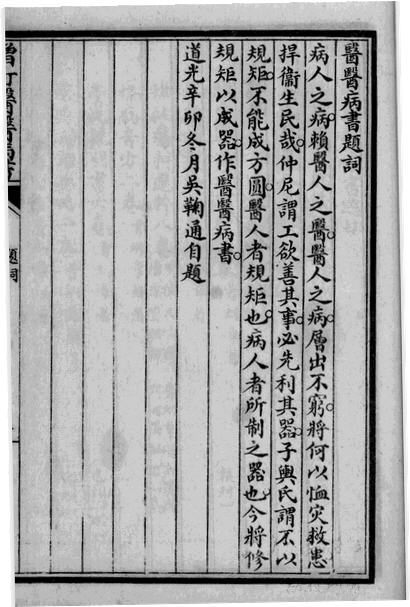 醫醫病書題詞
病人之病賴醫人之醫醫人之病層出不窮將何以恤灾救患
捍衞生民哉仲尼謂工欲善其事必先利其器子輿氏謂不以
規矩不能成方圓醫人者規矩也病人者所制之器也今將修
規矩以成器作醫醫病書
道光辛卯冬月吳鞠通自題
題詞